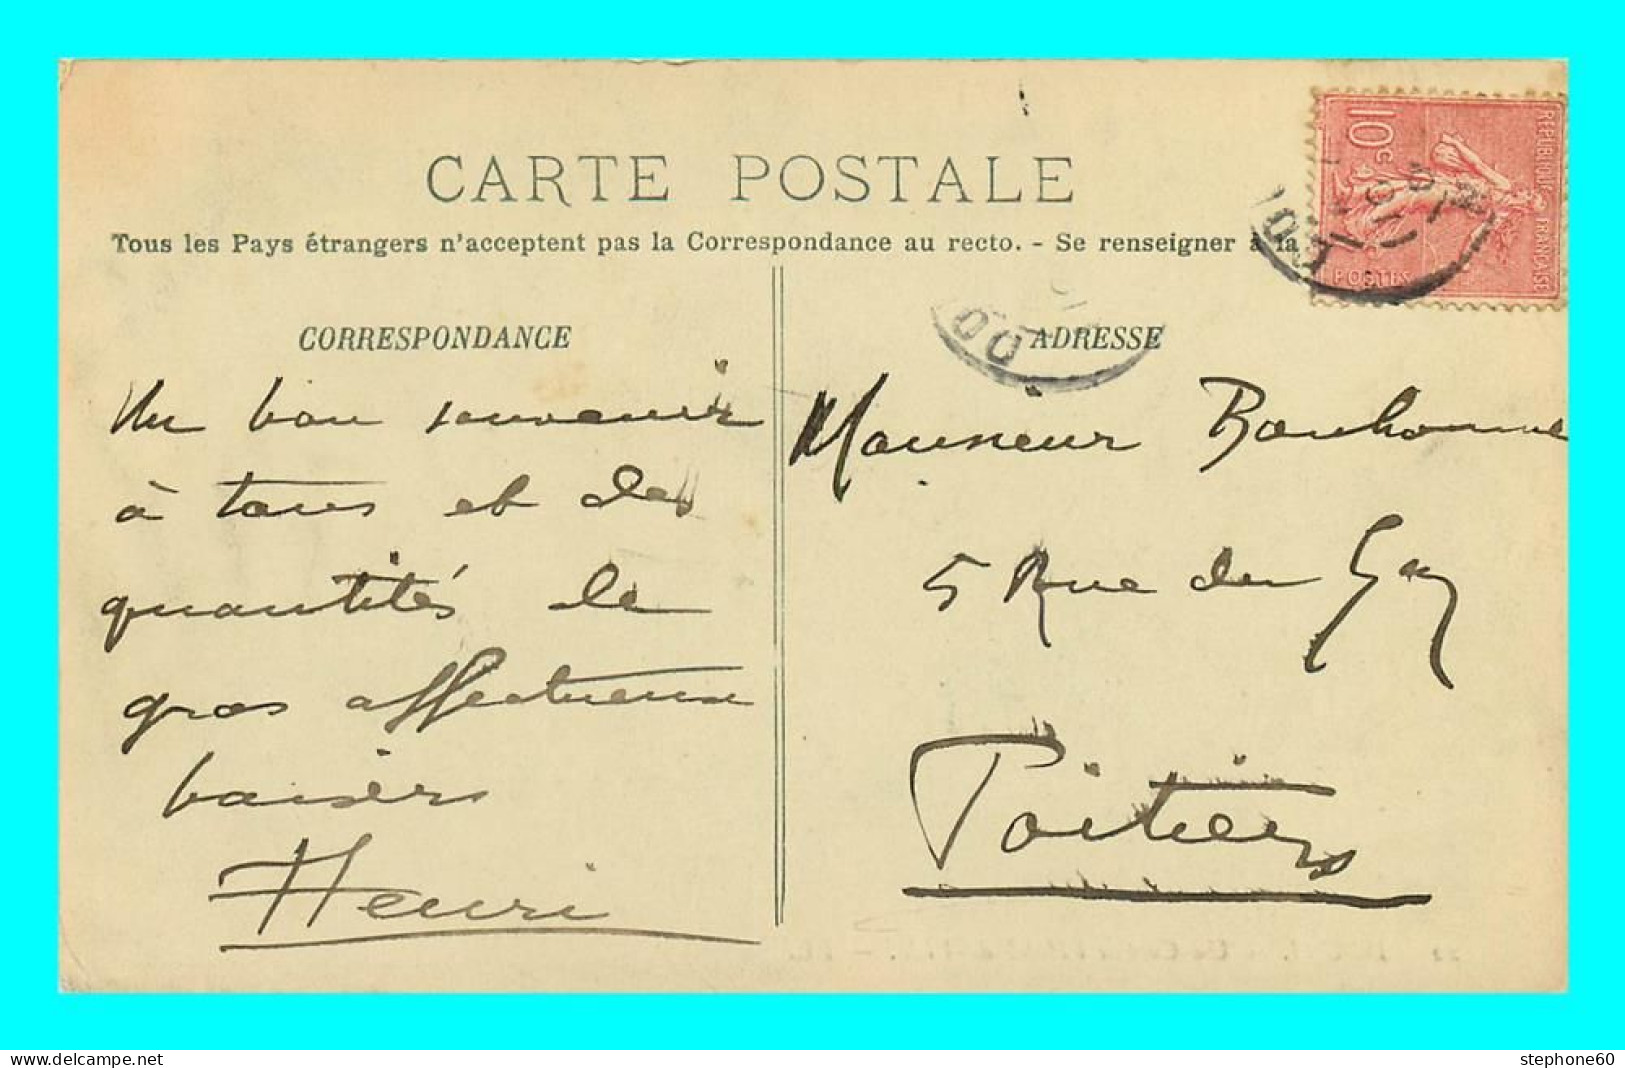 CARTE POSTALE
Tous les Pays étrangers n'acceptent pas la Correspondance au recto. - Se renseigner à la
10c
REPUBLIQUE FRANÇAISE
POSTES
CORRESPONDANCE
Un bon souvenir
à tous et des
quantités de
gros affectueux
baisers
Henri
ADRESSE
Monsieur Bonhomme
5 Rue du Gaz
Poitiers
stephone60